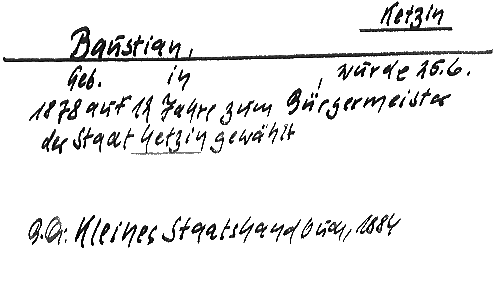 Ketzin
Baustian,
Geb. in , wurde 26.6.
1878 auf 12 Jahre zum Bürgermeister
der Stadt Ketzin gewählt
Kleines Staatshandbuch, 1884